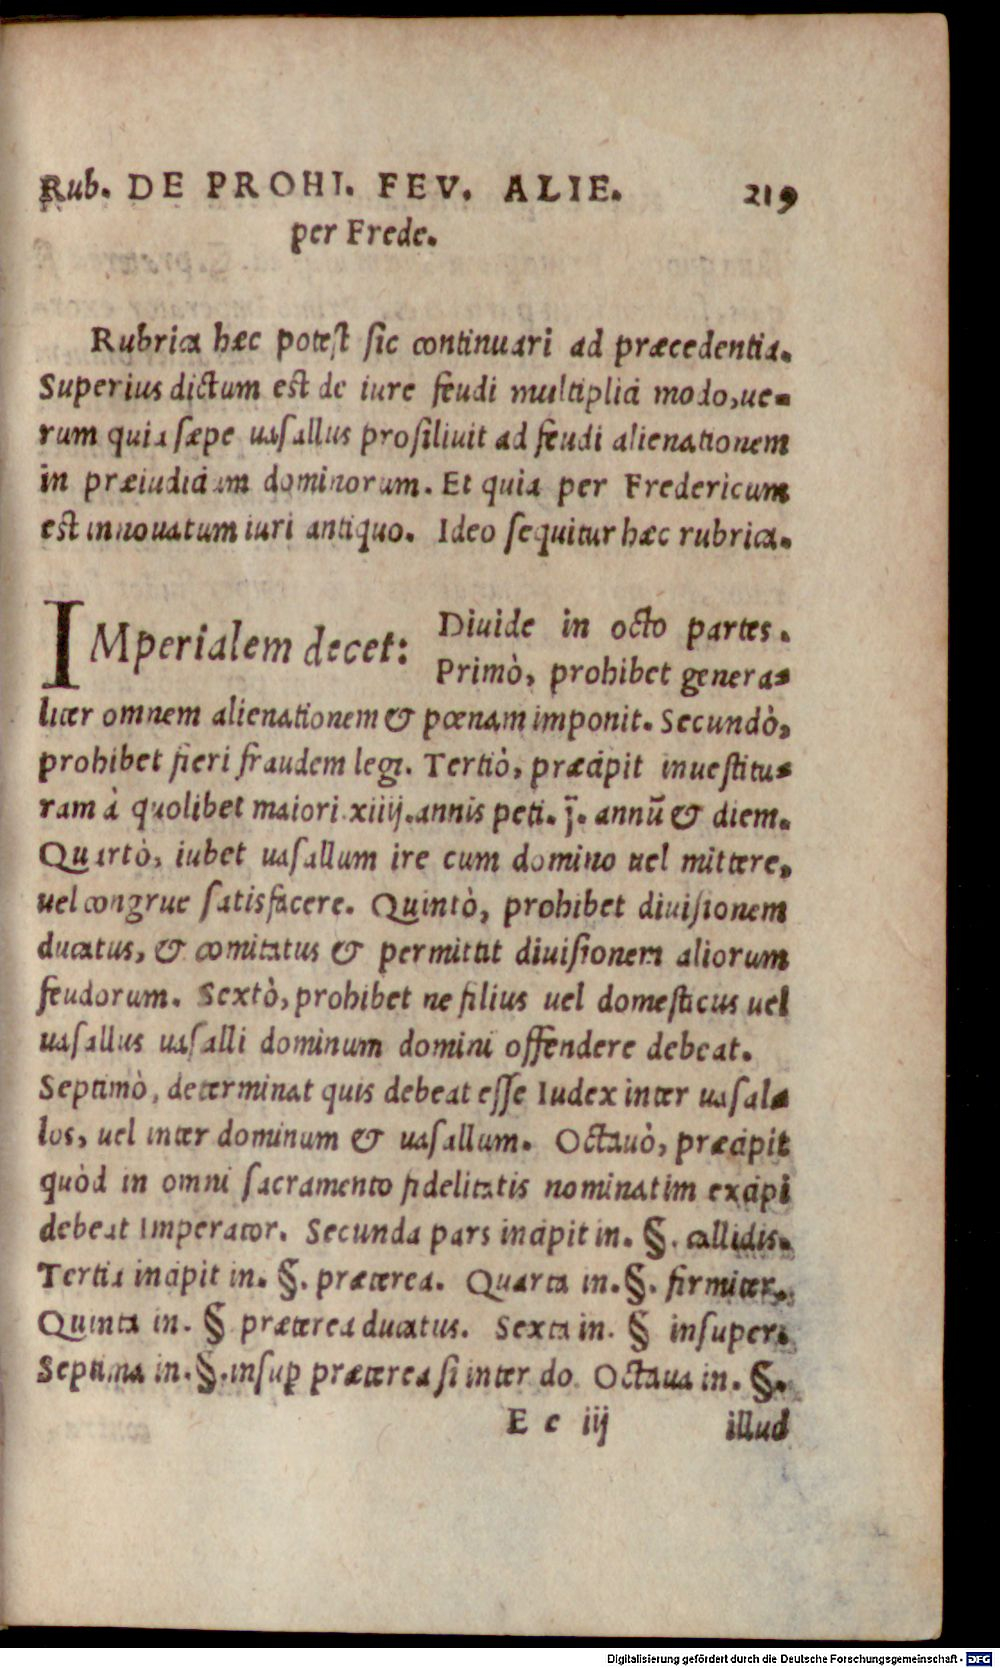 Rub. DE PROHI. FEV. ALIE. 219
per Frede.
Rubrica hæc potest sic continuari ad præcedentia.
Superius dictum est de iure feudi multiplici modo, ue-
rum quia sæpe uasallus prosiliuit ad feudi alienationem
in præiudicium dominorum. Et quia per Fredericum
est innouatum iuri antiquo. Ideo sequitur hæc rubrica.
IMperialem decet: Diuide in octo partes.
Primò, prohibet genera-
liter omnem alienationem & pœnam imponit. Secundò,
prohibet fieri fraudem legi. Tertiò, præcipit inuestitu-
ram à quolibet maiori xiiij. annis peti. j̃. annũ & diem.
Quartò, iubet uasallum ire cum domino uel mittere,
uel congrue satisfacere. Quintò, prohibet diuisionem
ducatus, & comitatus & permittit diuisionem aliorum
feudorum. Sextò, prohibet ne filius uel domesticus uel
uasallus uasalli dominum domini offendere debeat.
Septimò, determinat quis debeat esse Iudex inter uasal-
los, uel inter dominum & uasallum. Octauò, præcipit
quòd in omni sacramento fidelitatis nominatim excipi
debeat Imperator. Secunda pars incipit in. §. callidis.
Tertia incipit in. §. præterea. Quarta in. §. firmiter.
Quinta in. § præterea ducatus. Sexta in. § insuper.
Septima in. §. insuꝑ præterea si inter do. Octaua in. §.
E e iij illud
Digitalisierung gefördert durch die Deutsche Forschungsgemeinschaft - DFG